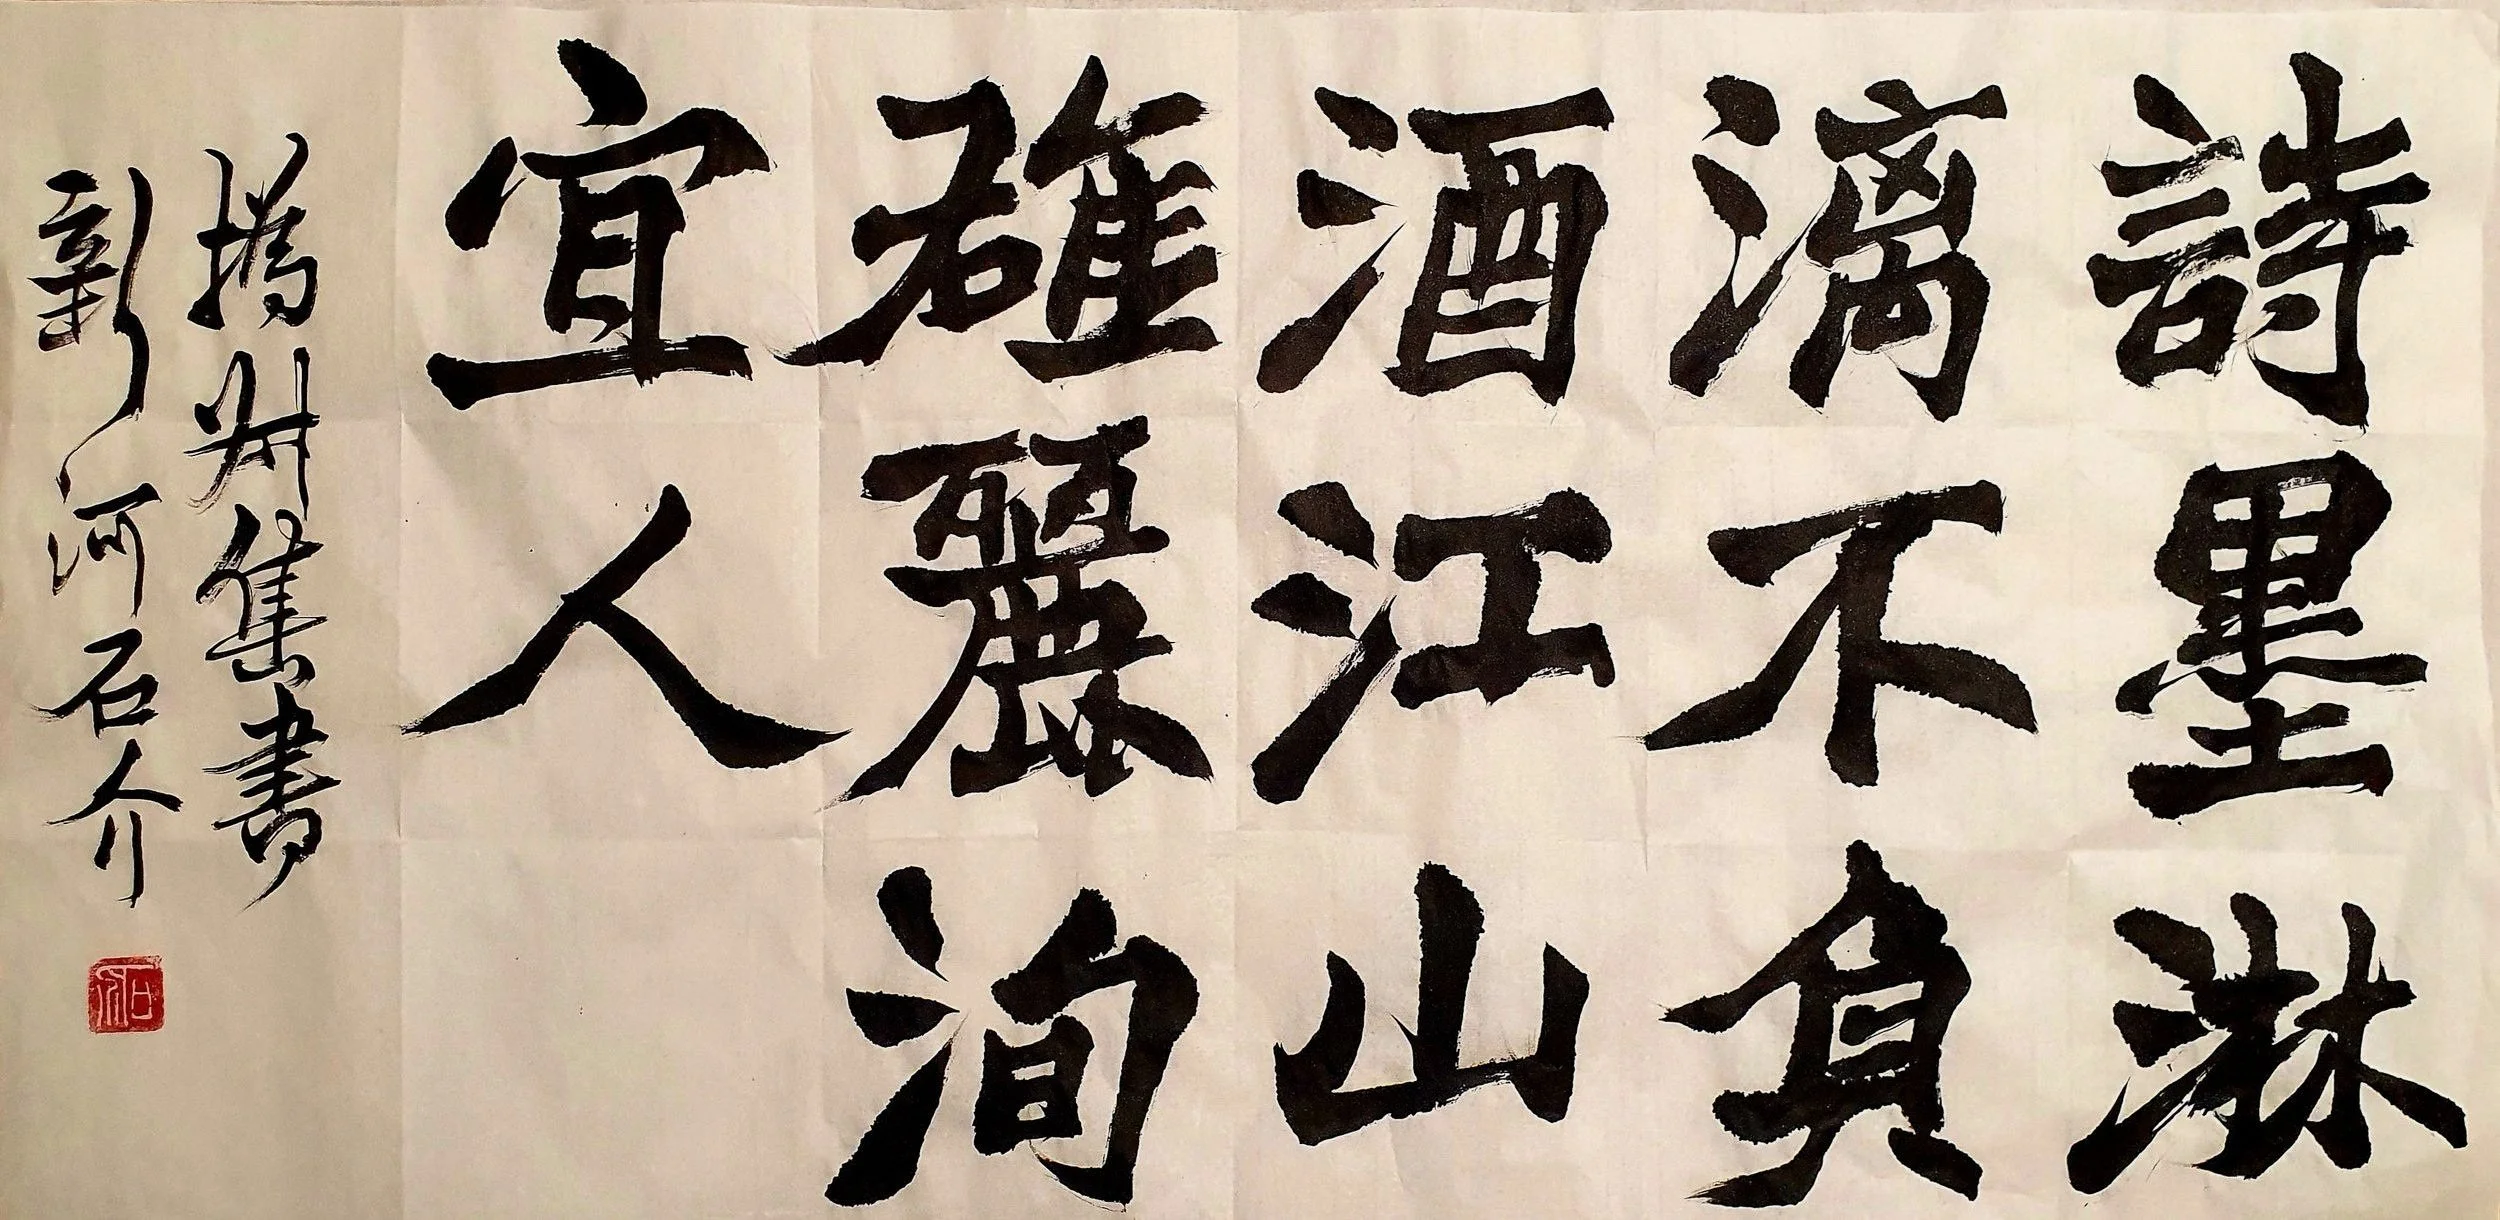 詩墨淋
漓不負
酒江山
雄麗洵
宜人
撝叔集書
新河石介